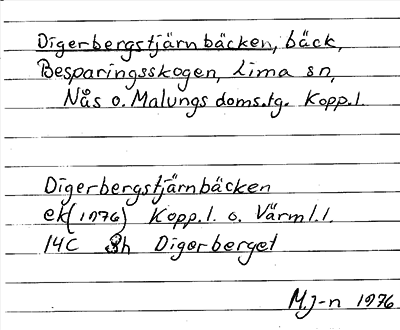 Digerbergstjärnbäcken, bäck,
Besparingsskogen, Lima sn,
Nås o. Malungs doms.tg. Kopp.l.
Digerbergstjärnbäcken
ek (1976) Kopp.l. o. Värml.l.
14C h Digerberget
M.J-n 1976